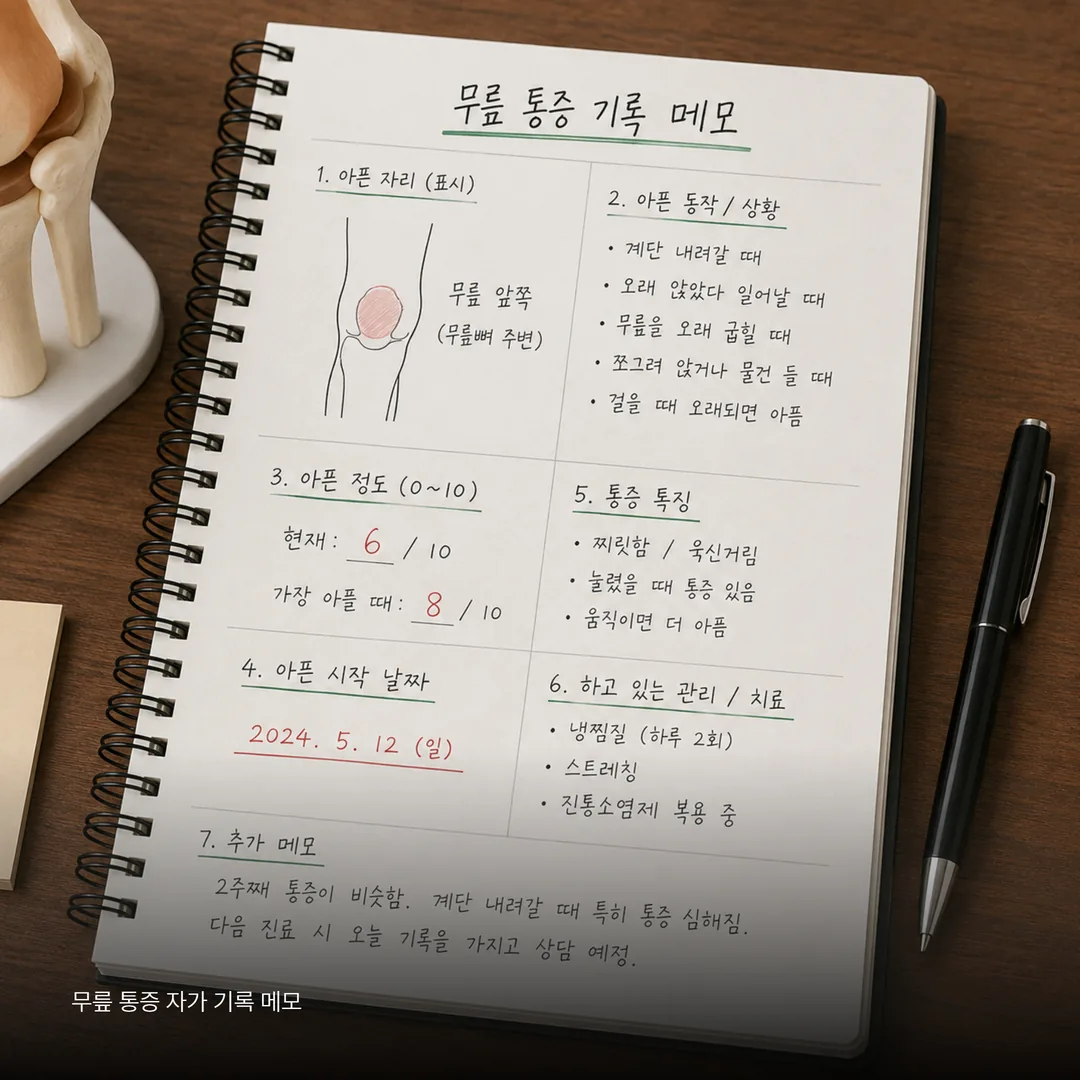 무릎 통증 기록 메모
1. 아픈 자리 (표시)
무릎 앞쪽
(무릎뼈 주변)
2. 아픈 동작 / 상황
• 계단 내려갈 때
• 오래 앉았다 일어날 때
• 무릎을 오래 굽힐 때
• 쪼그려 앉거나 물건 들 때
• 걸을 때 오래되면 아픔
3. 아픈 정도 (0~10)
현재: 6 / 10
가장 아플 때: 8 / 10
4. 아픈 시작 날짜
2024. 5. 12 (일)
5. 통증 특징
• 찌릿함 / 욱신거림
• 눌렀을 때 통증 있음
• 움직이면 더 아픔
6. 하고 있는 관리 / 치료
• 냉찜질 (하루 2회)
• 스트레칭
• 진통소염제 복용 중
7. 추가 메모
2주째 통증이 비슷함. 계단 내려갈 때 특히 통증 심해짐.
다음 진료 시 오늘 기록을 가지고 상담 예정.
무릎 통증 자가 기록 메모